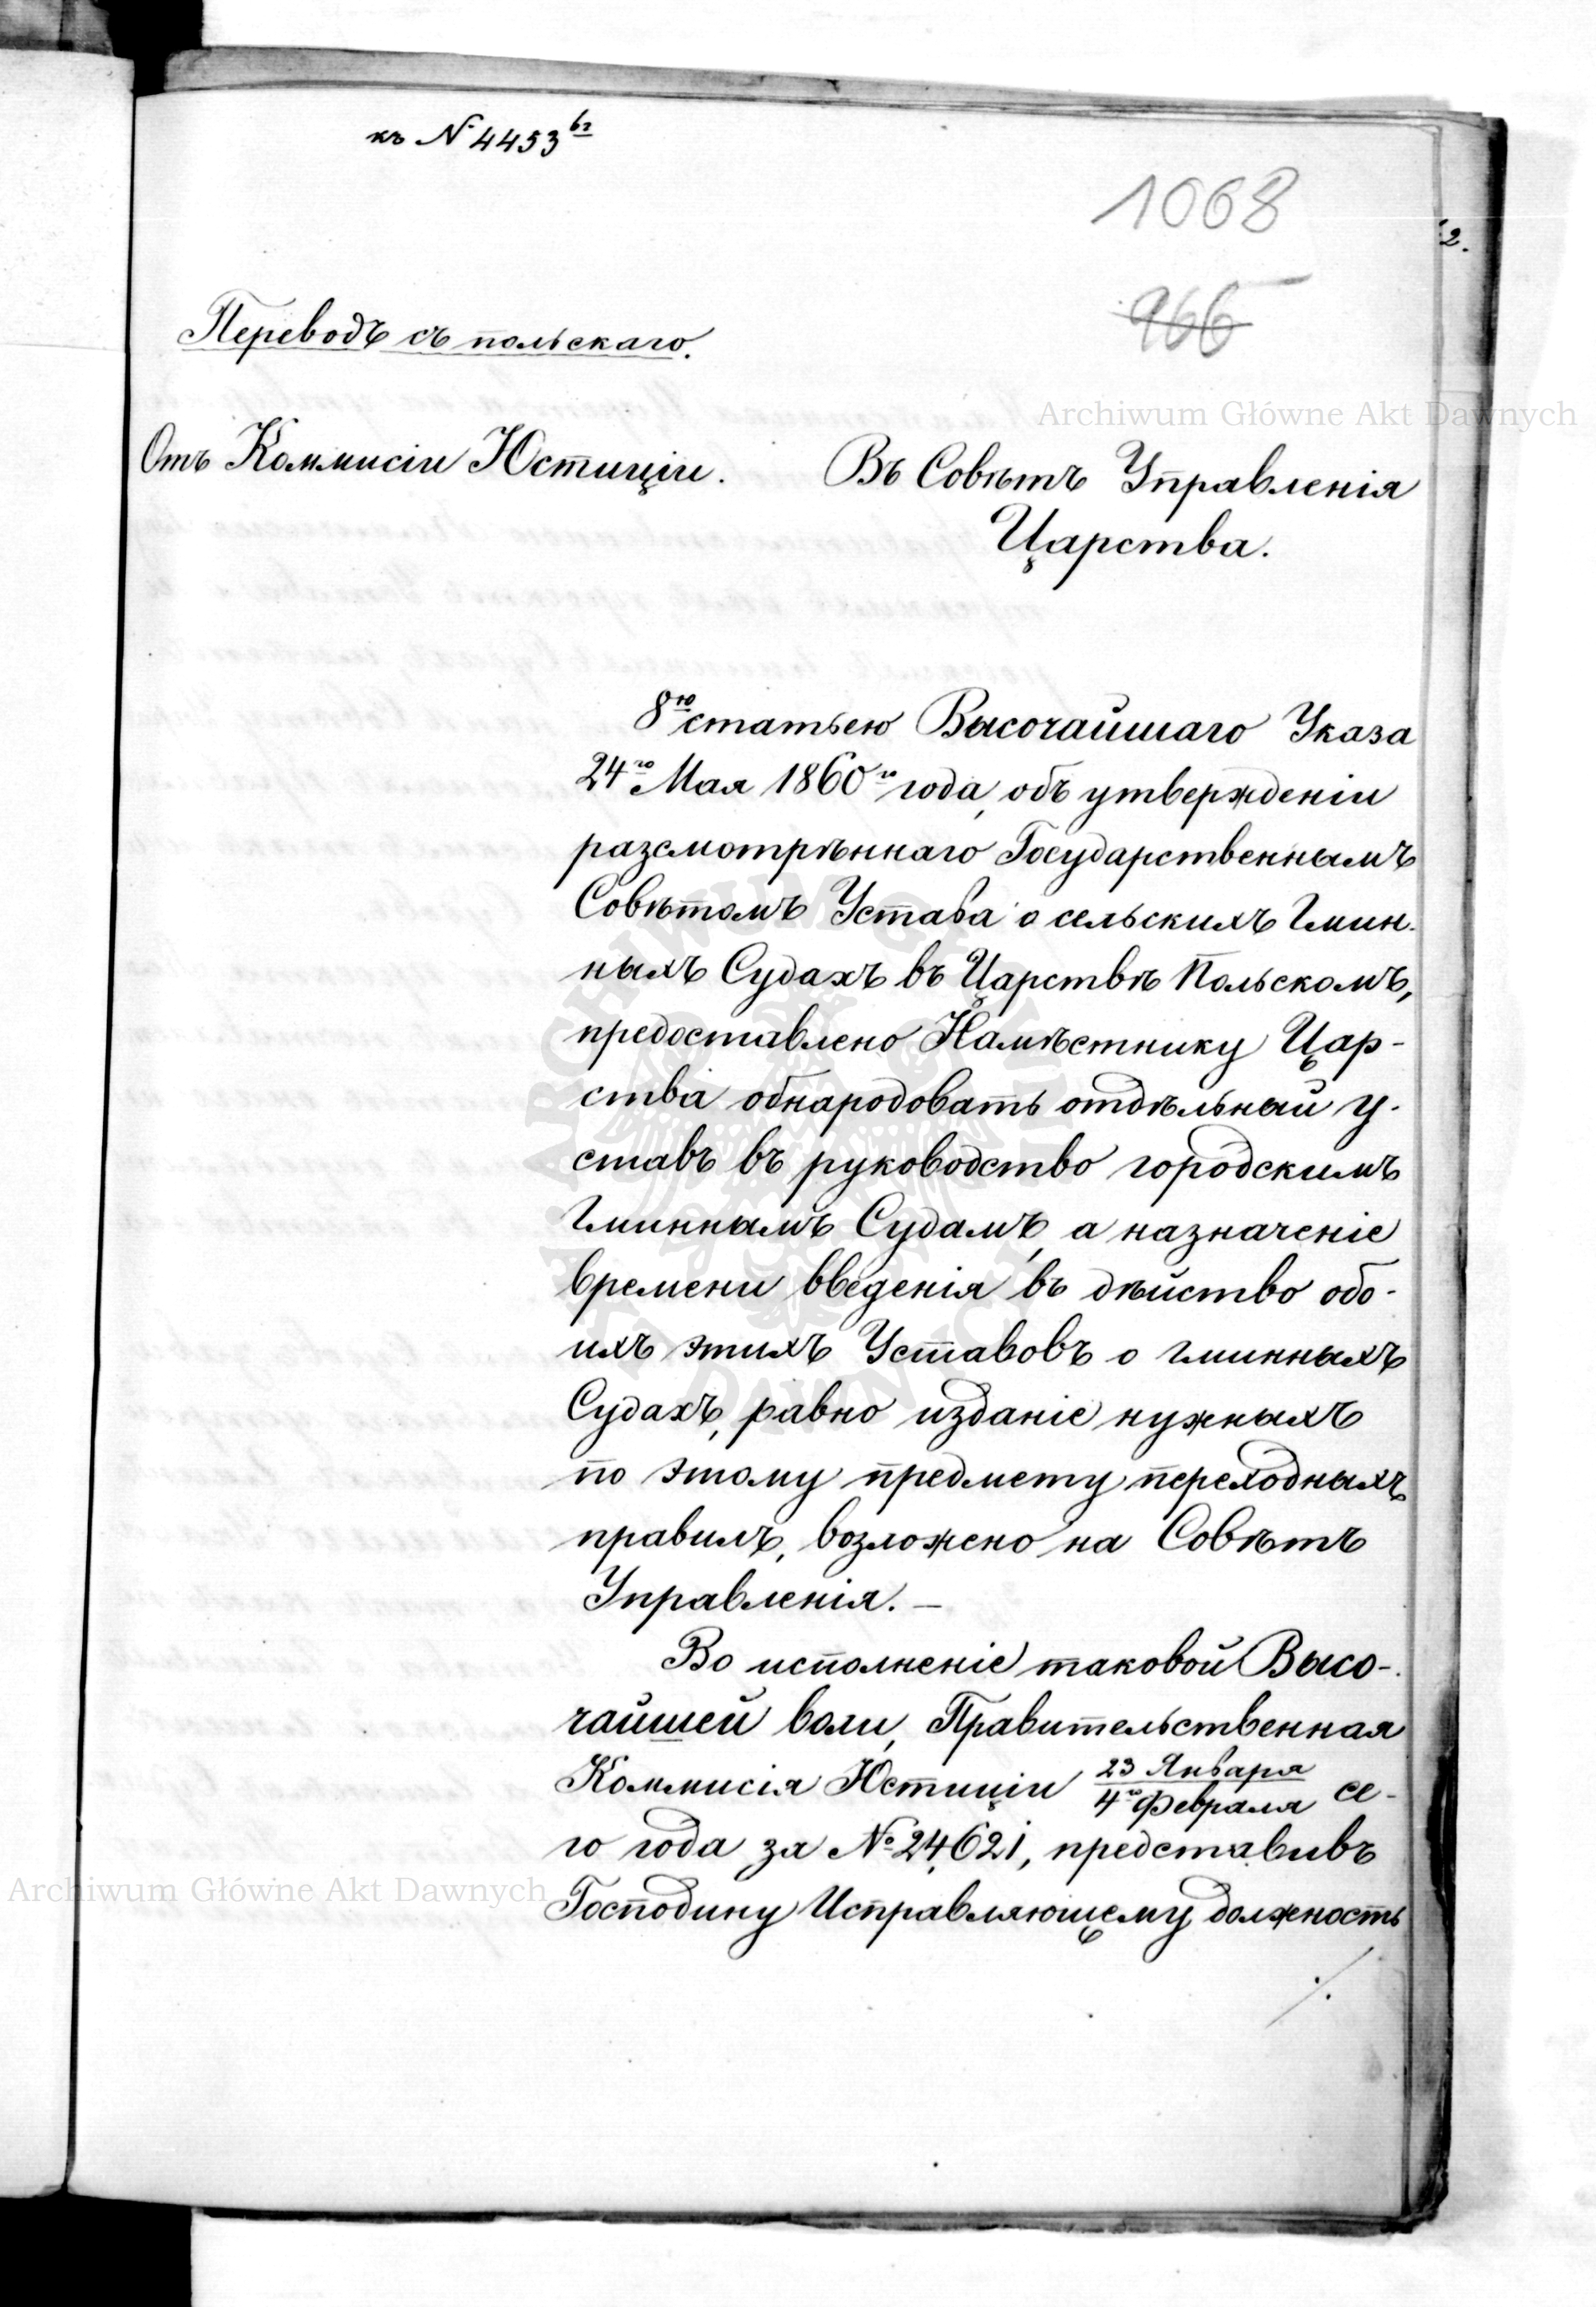 къ № 4453 61
1068
2.
966
Переводъ съ польскаго.
Archiwum Główne Akt Dawnych
Отъ Коммисіи Юстиціи.
Въ Совѣтъ Управленія
Царства.
8ю статьею Высочайшаго Указа
24го Мая 1860го года, объ утвержденіи
разсмотрѣннаго Государственнымъ
Совѣтомъ Устава о сельскихъ Гмин-
ныхъ Судахъ въ Царствѣ Польскомъ,
предоставлено Намѣстнику Цар-
ства обнародовать отдѣльный у-
ставъ въ руководство городскимъ
Гминнымъ Судамъ, а назначеніе
времени введенія въ дѣйство обо-
ихъ этихъ Уставовъ о гминныхъ
Судахъ, равно изданіе нужныхъ
по этому предмету переходныхъ
правилъ, возложено на Совѣтъ
Управленія. —
Во исполненіе таковой Высо-
чайшей воли, Правительственная
Коммисія Юстиціи 23 Января / 4го Февраля се-
го года за № 24,621, представивъ
Archiwum Główne Akt Dawnych
Господину Исправляющему должность
./.